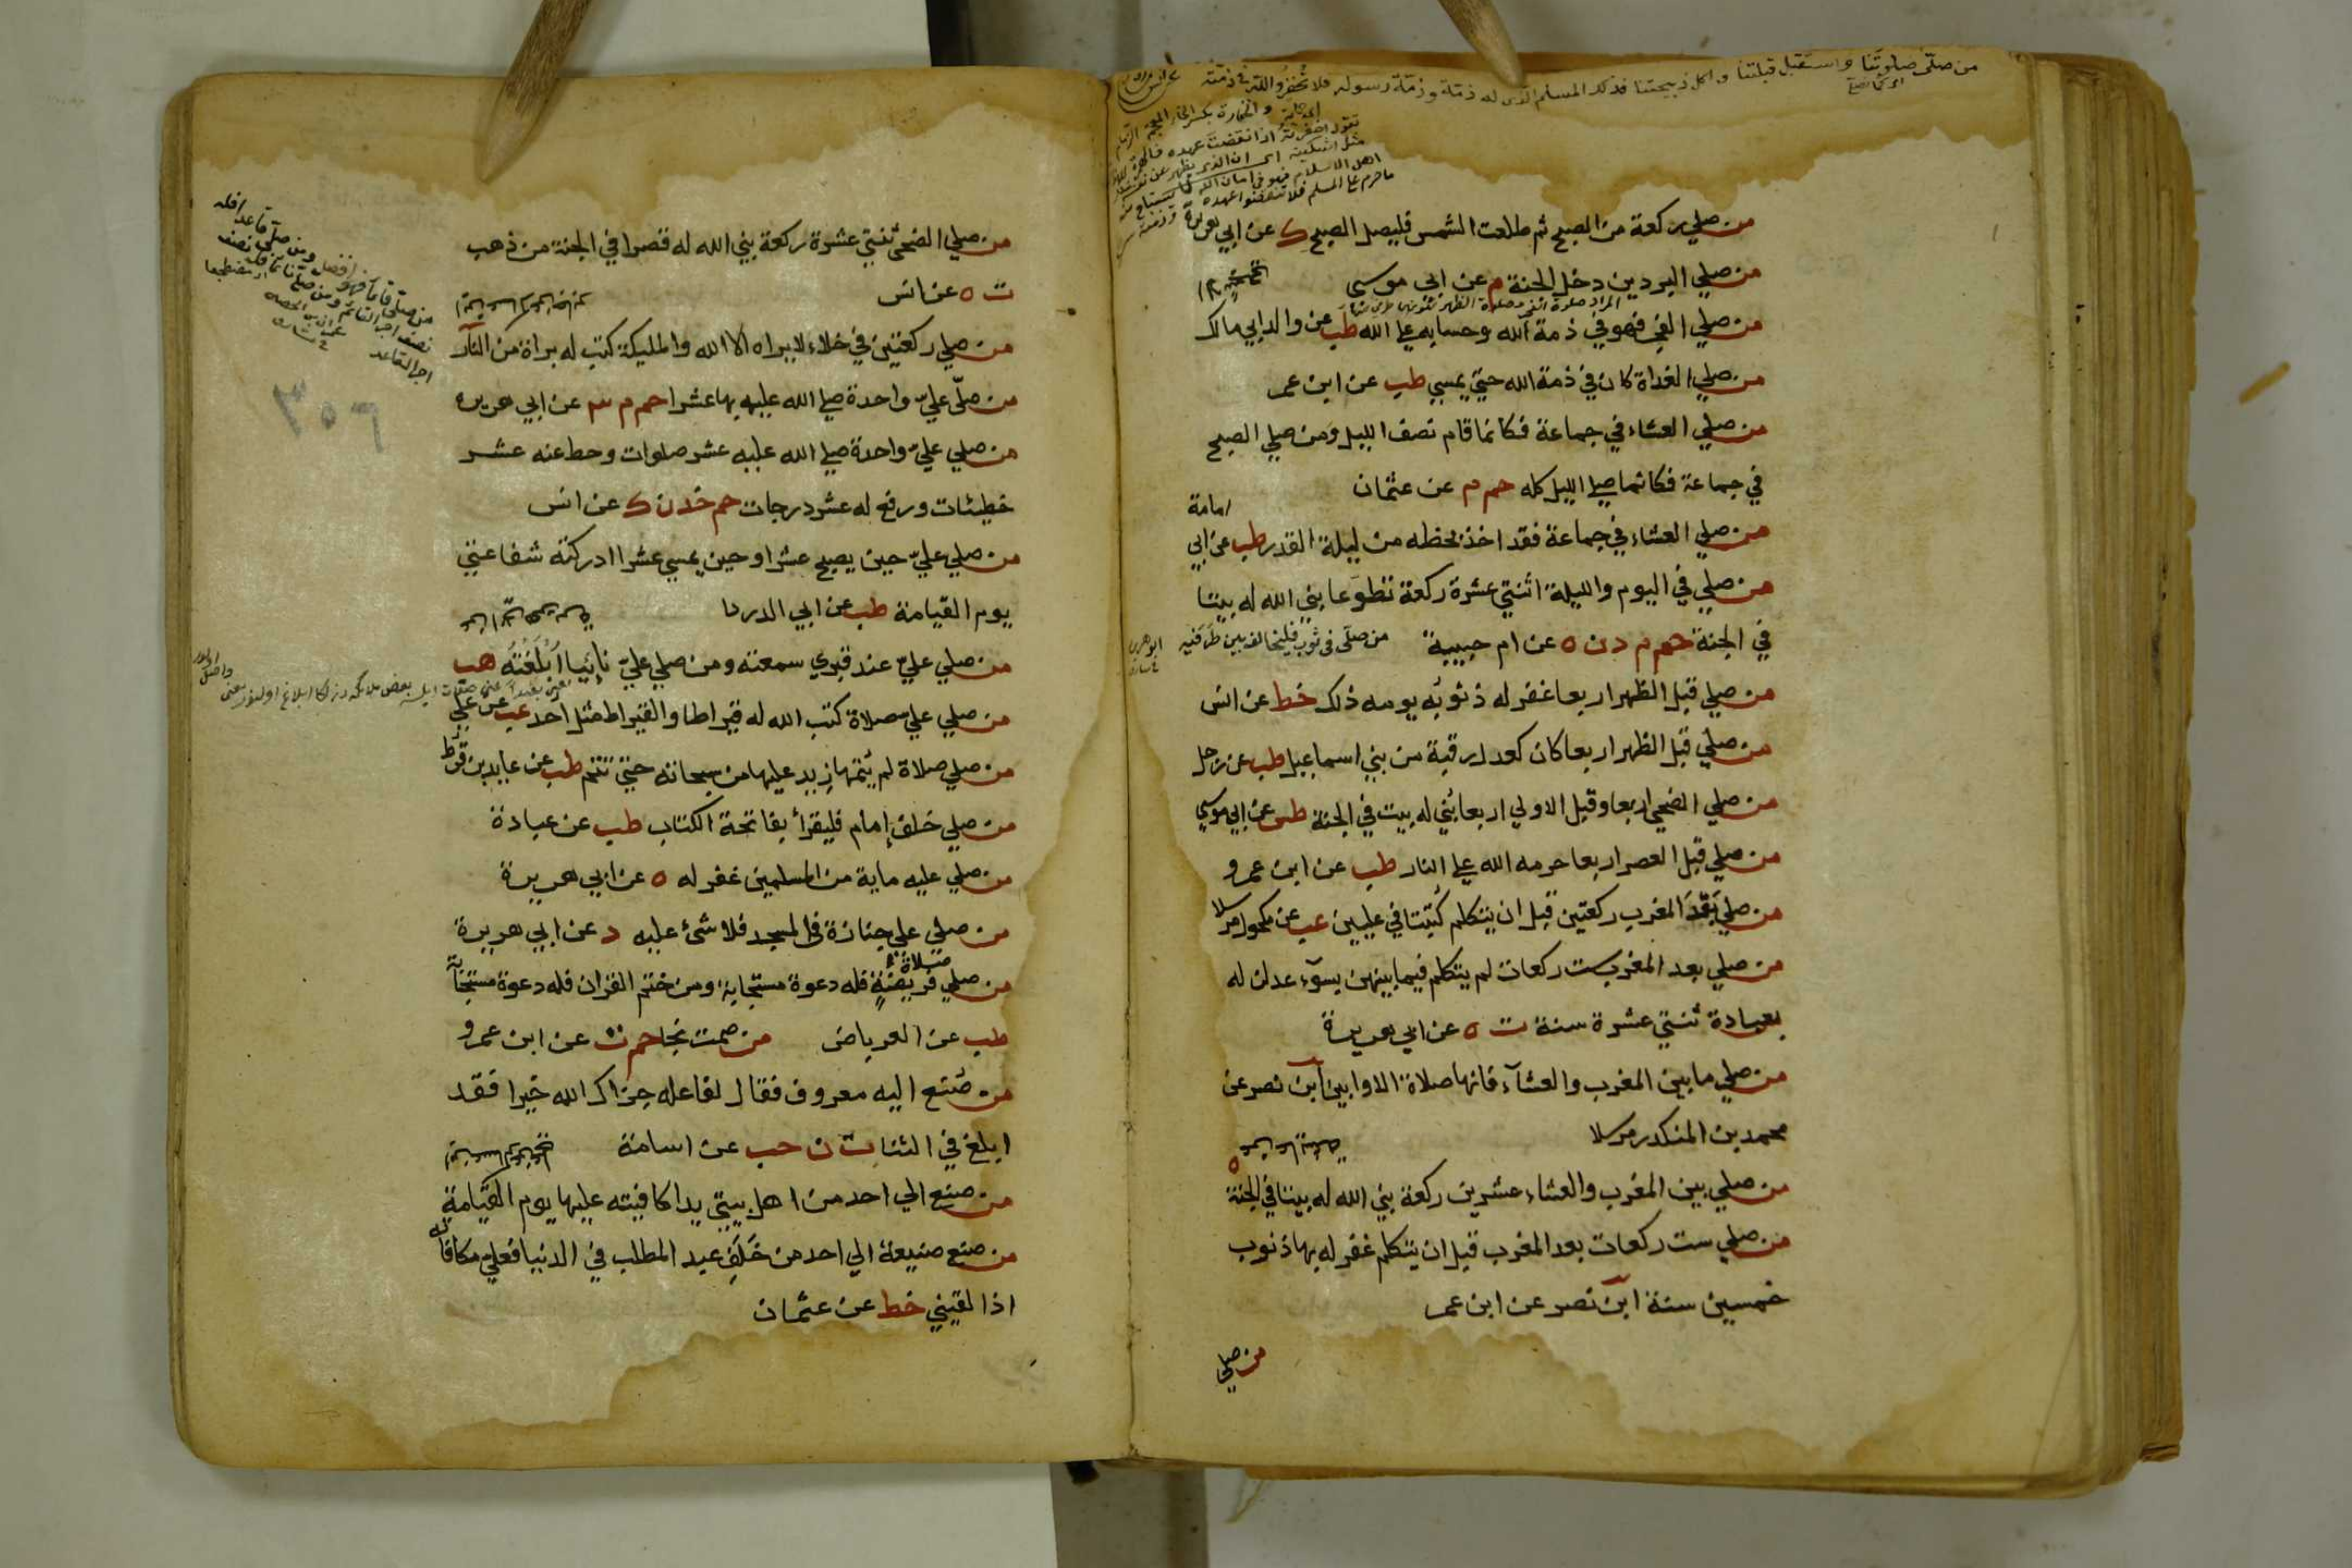 من صلّى صلوتنا واستقبل قبلتنا واكل ذبيحتنا فذلك المسلم الذى له ذمّة الله وذمّة رسوله فلا تخفروا الله فى ذمّته
من صلي ركعة من الصبح ثم طلعت الشمس فليصل الصبح ك عن ابي هريرة
من صلي البردين دخل الجنة م عن ابى موسى
من صلي الفجر فهو في ذمة الله وحسابه علي الله طب عن والد ابي مالك
من صلي الغداة كان في ذمة الله حتي يمسي طب عن ابن عمر
من صلي العشاء في جماعة فكانما قام نصف الليل ومن صلي الصبح
في جماعة فكانما صلي الليل كله حم م عن عثمان
من صلي العشاء في جماعة فقد اخذ بحظه من ليلة القدر طب عن ابي امامة
من صلي في اليوم والليلة اثنتي عشرة ركعة تطوعا بني الله له بيتا
في الجنة حم م د ن ه عن ام حبيبة من صلّى فى ثوب فليخالف بين طرفيه
من صلي قبل الظهر اربعا غفر له ذنوبه يومه ذلك خط عن انس
من صلي قبل الظهر اربعا كان كعدل رقبة من بني اسماعيل طب عن رجل
من صلي الضحي اربعا وقبل الاولي اربعا بُني له بيت في الجنة طس عن ابي موسي
من صلي قبل العصر اربعا حرمه الله علي النار طب عن ابن عمرو
من صلي بَعْدَ المغرب ركعتين قبل ان يتكلم كُتبتا في عليين عب عن مكحول مرسلا
من صلي بعد المغرب ست ركعات لم يتكلم فيما بينهن بسوء عدلن له
بعبادة ثنتي عشرة سنة ت ه عن ابي هريرة
من صلي ما بين المغرب والعشآء فانها صلاة الاوابين ابن نصر عن
محمد بن المنكدر مرسلا
من صلي بين المغرب والعشاء عشرين ركعة بني الله له بيتا في الجنة ه
من صلي ست ركعات بعد المغرب قبل ان يتكلم غفر له بها ذنوب
خمسين سنة ابن نصر عن ابن عمر
من صلي
من صلي الضحي ثنتي عشرة ركعة بني الله له قصرا في الجنة من ذهب
ت ه عن انس
من صلي ركعتين في خلاء لا يراه الا الله والمليكة كتب له براة من النار
من صلّي عليّ واحدة صلي الله عليه بها عشرا حم م عن ابي هريره
من صلي عليّ واحدة صلي الله عليه عشر صلوات وحط عنه عشر
خطيئات ورفع له عشر درجات حم خد ن ك عن انس
من صلي عليّ حين يصبح عشرا وحين يمسي عشرا ادركته شفاعتي
يوم القيامة طب عن ابي الدردا
من صلي عليّ عند قبري سمعته ومن صلي عليّ نائيا أُبْلِغْتُه هب
من صلي عليّ صلاة كتب الله له قيراطا والقيراط مثل احد عب عن علي
من صلي صلاة لم يُتمّها زيد عليها من سبحاته حتي تتم طب عن عايد بن قرط
من صلي خلف إمام فليقرأ بفاتحة الكتاب طب عن عبادة
من صلي عليه ماية من المسلمين غفر له ه عن ابي هريرة
من صلي علي جنازة في المسجد فلا شئ عليه د عن ابي هريرة
صلاة
من صلي فريضةٍ فله دعوة مستجابة ومن ختم القران فله دعوة مستجابة
طب عن العرباض من صمت نجا حم ت عن ابن عمرو
من صُنع اليه معروف فقال لفاعله جزاك الله خيرا فقد
ابلغ في الثنا ت ن حب عن اسامة
من صنع الي احد من اهل بيتي يدا كافيته عليها يوم القيامة
من صنع صنيعة الي احد من خَلَف عبد المطلب في الدنيا فعليّ مكافاته
اذا لقيني خط عن عثمان